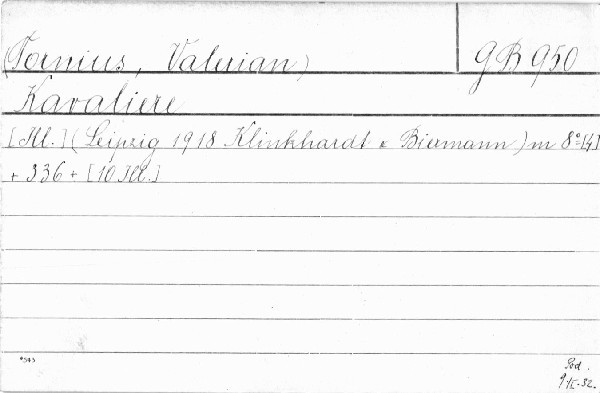 (Tornius, Valerian) GB 950
Kavaliere
[Ill.] (Leipzig 1918 Klinkhardt & Biermann) m 8° [4]
+ 336 + [10 Ill.]
*545
Pod.
9/IX-32.